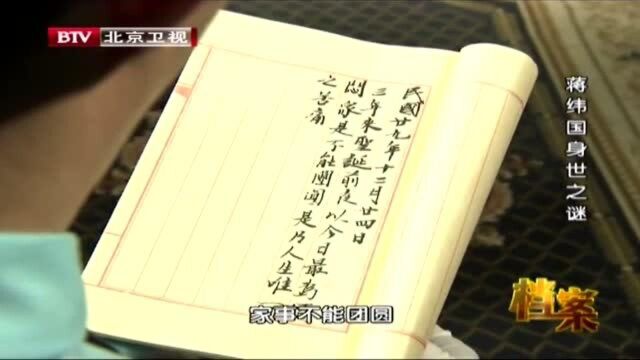 BTV 北京卫视
蒋纬国身世之谜
民國廿九年十二月廿四日
三年來聖誕前夜以今日最
悶家是不能團圓是乃人生唯
之苦痛
家事不能团圆
档案